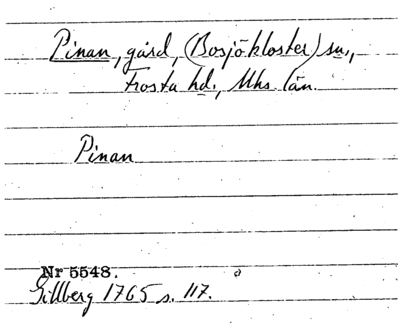 Pinan, gård, (Bosjökloster) sn.,
Frosta hd., Mhs län.
Pinan
Nr 5548.
Gillberg 1765 s. 117.